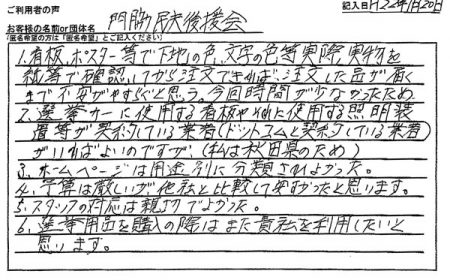 ご利用者の声
記入日H22年1月20日
お客様の名前or団体名 門脇民夫後援会
(匿名希望の方は「匿名希望」とご記入ください)
1.看板、ポスター等で下地の色、文字の色等実際、実物を
紙等で確認してから注文できれば、注文した品が届く
まで不安がやすらぐと思う。今回時間が少なかったため
2.選挙カーに使用する看板やそれに使用する照明装
置等が契約している業者(ドットコムと契約している業者)
がいればよいのですが、(私は秋田県のため)
3.ホームページは用途別に分類されよかった。
4.予算は厳しいが他社と比較して安すかったと思います。
5.スタッフの対応は親切でよかった。
6.選挙用品を購入の際はまた貴社を利用したいと
思います。